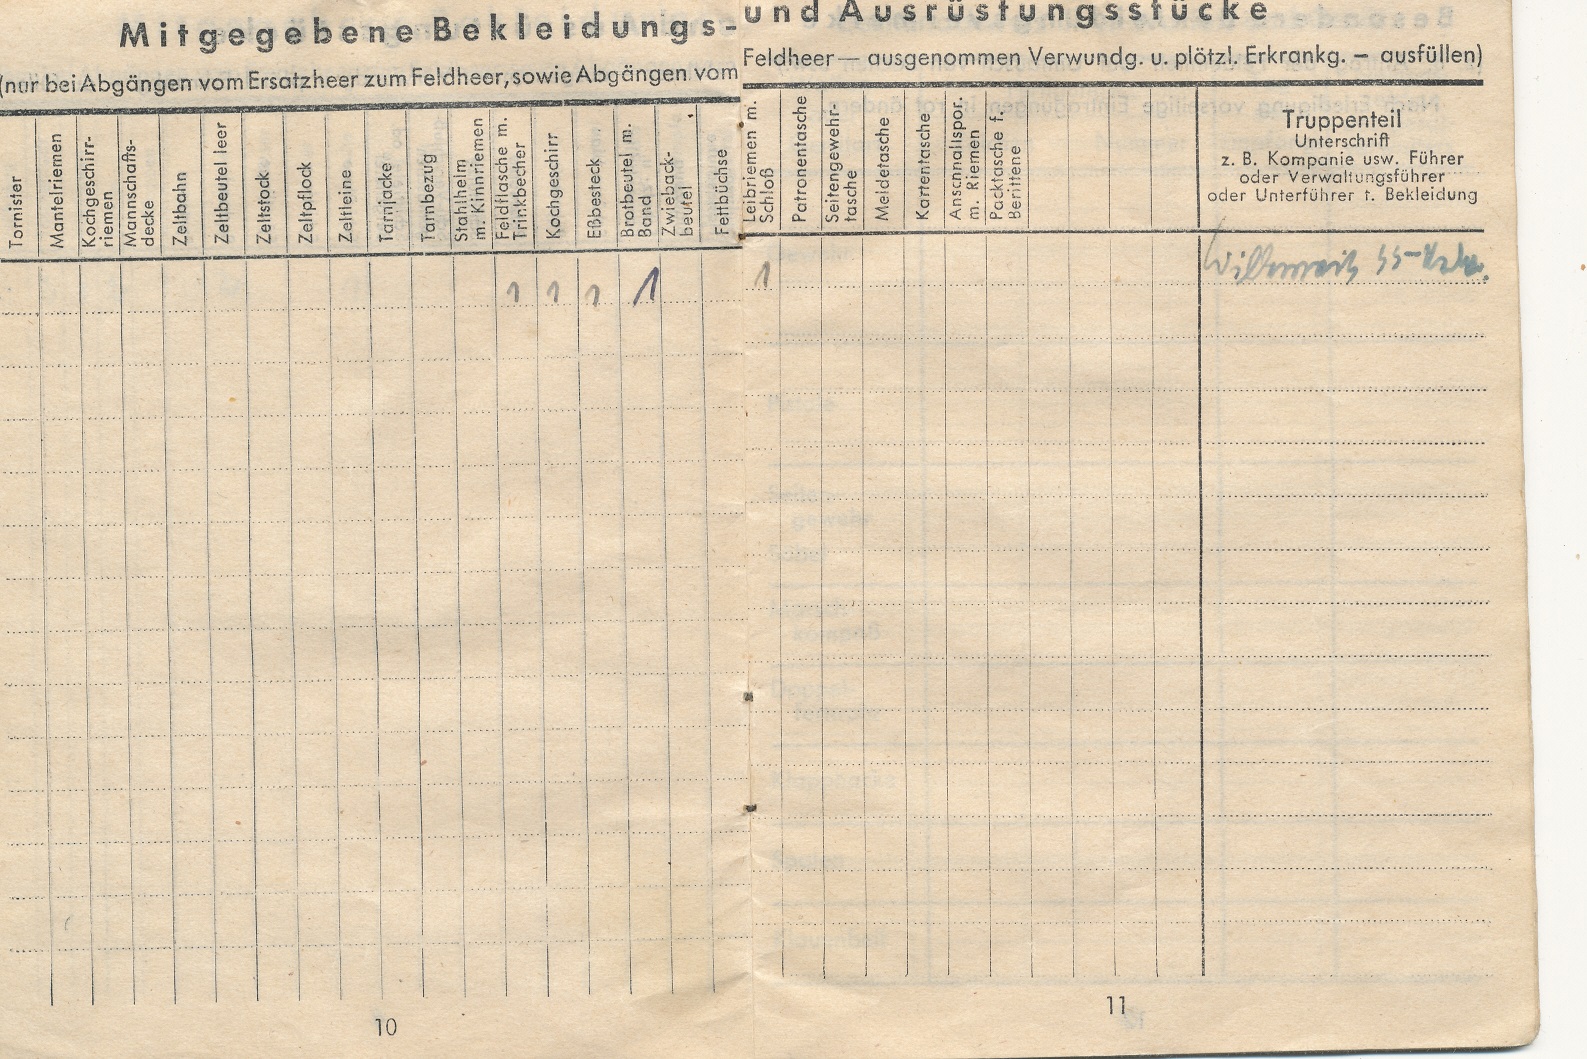 Mitgegebene Bekleidungs- und Ausrüstungsstücke
(nur bei Abgängen vom Ersatzheer zum Feldheer, sowie Abgängen vom Feldheer — ausgenommen Verwundg. u. plötzl. Erkrankg. — ausfüllen)
Tornister
Mantelriemen
Kochgeschirr-
riemen
Mannschafts-
decke
Zeltbahn
Zeltbeutel leer
Zeltstock
Zeltpflock
Zeltleine
Tarnjacke
Tarnbezug
Stahlhelm
m. Kinnriemen
Feldflasche m.
Trinkbecher
Kochgeschirr
Eßbesteck
Brotbeutel m.
Band
Zwieback-
beutel
Fettbüchse
Leibriemen m.
Schloß
Patronentasche
Seitengewehr-
tasche
Meldetasche
Kartentasche
Anschnallspor.
m. Riemen
Packtasche f.
Berittene
Truppenteil
Unterschrift
z. B. Kompanie usw. Führer
oder Verwaltungsführer
oder Unterführer f. Bekleidung
1 1 1 1 1 SS-
10
11